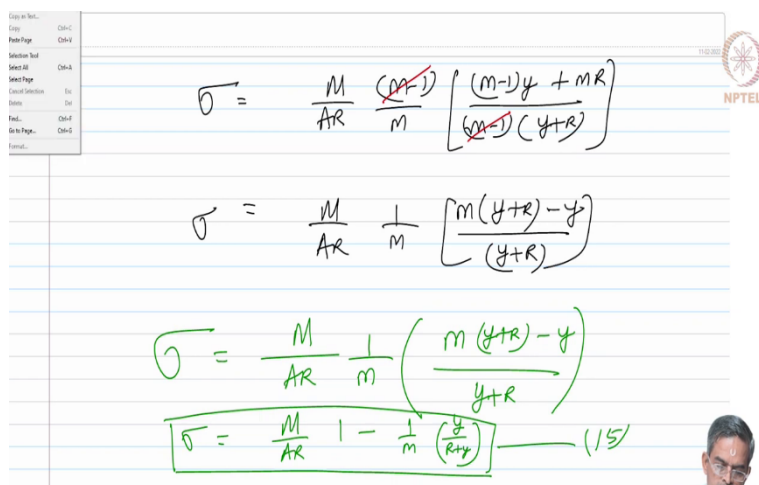 Copy as Text...
Copy Ctrl+C
Paste Page Ctrl+V
Selection Tool
Select All Ctrl+A
Select Page
Cancel Selection Esc
Delete Del
Find... Ctrl+F
Go to Page... Ctrl+G
Format...
11-02-2022
NPTEL
σ = M/AR (m-1)/m [((m-1)y + mR)/((m-1)(y+R))]
σ = M/AR 1/m [(m(y+R)-y)/(y+R)]
σ = M/AR 1/m ((m(y+R)-y)/(y+R))
σ = M/AR 1 - 1/m (y/(R+y)) —— (15)